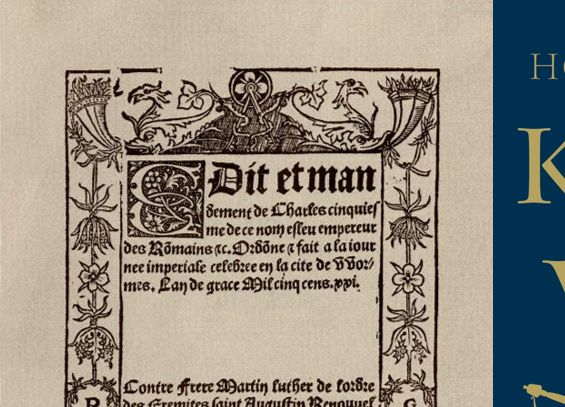 EDit et man
dement de Charles cinquies
me de ce nom esleu empereur
des Rõmains ⁊c. Ordõne ⁊ fait a la iour
nee imperiale celebree en la cite de VVor⸗
mes. Lan de grace Mil cinq cens. xxi.
Contre frere Martin luther de lordre
des Eremites saint Augustin Renouvel
R G
HO
K
V